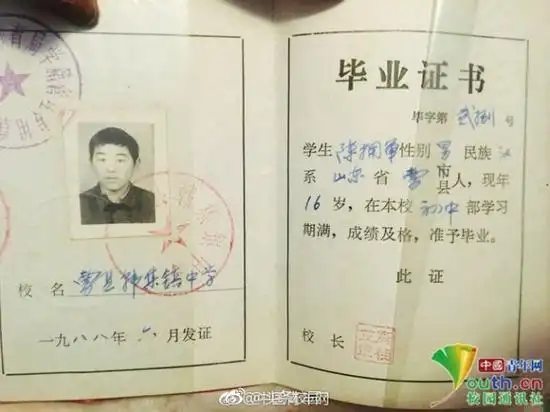 校名 曹县韩集镇中学
一九八八年六月发证
毕业证书
毕字第 号
学生 陈拥军 性别 男 民族 汉
系 山东 省 曹 市县 人，现年
16 岁，在本校 初中 部学习
期满，成绩及格，准予毕业。
此证
校长
中国青年网
youth.cn
校园通讯社